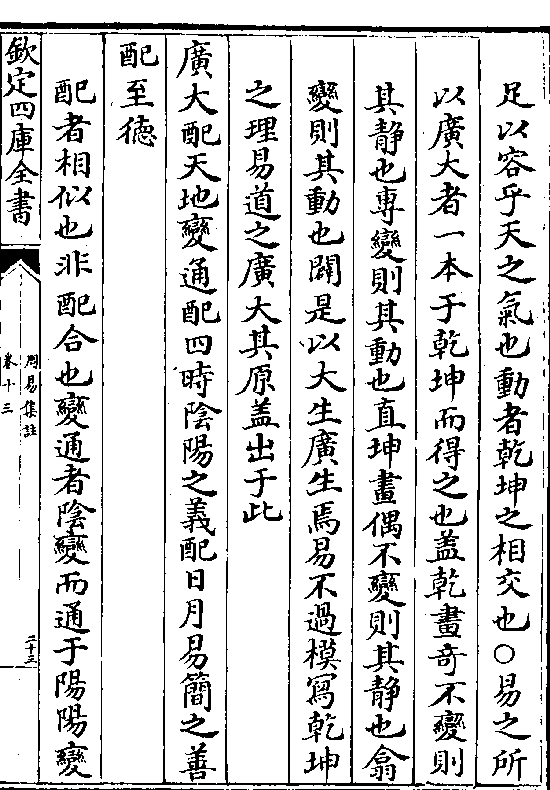 足以容乎天之氣也動者乾坤之相交也○易之所
以廣大者一本于乾坤而得之也盖乾畫奇不變則
其静也專變則其動也直坤畫偶不變則其静也翕
變則其動也闢是以大生廣生焉易不過模寫乾坤
之理易道之廣大其原盖出于此
廣大配天地變通配四時陰陽之義配日月易簡之善
配至德
配者相似也非配合也變通者陰變而通于陽陽變
欽定四庫全書
周易集註
卷十三
二十三